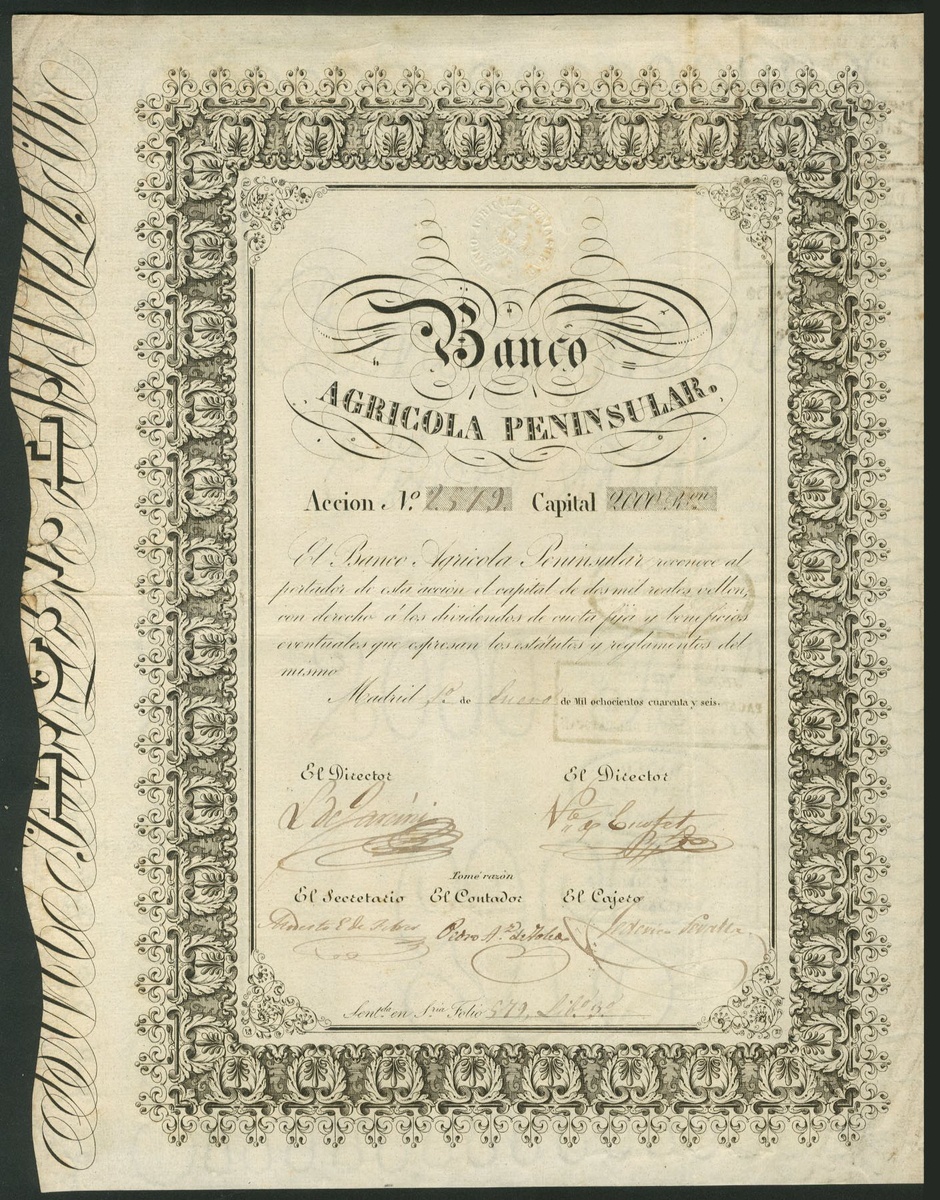 Banco
AGRICOLA PENINSULAR.
Accion N.º 2579. Capital 2000 R.on
El Banco Agricola Peninsular, reconoce al
portador de esta accion el capital de dos mil reales vellon,
con derecho á los dividendos de cuota fija y beneficios
eventuales que espresan los estatutos y reglamentos del
mismo.
Madrid 1º de Enero de Mil ochocientos cuarenta y seis.
El Director El Director
Tomé razón
El Secretario El Contador El Cajero
Sent.do en S.ria Folio 579, Lib.º 3º